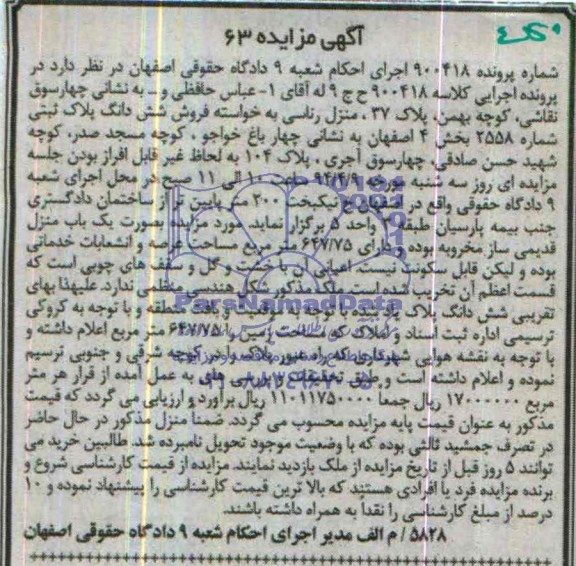 آگهی مزایده ۶۳
شماره پرونده ۹۰۰۴۱۸ اجرای احکام شعبه ۹ دادگاه حقوقی اصفهان در نظر دارد در
پرونده اجرایی کلاسه ۹۰۰۴۱۸ ح ج ۹ له آقای ۱- عباس حافظی و... به نشانی چهارسوق
نقاشی، کوچه بهمن، پلاک ۳۷ ، منزل رناسی به خواسته فروش شش دانگ پلاک ثبتی
شماره ۲۵۵۸ بخش ۴ اصفهان به نشانی چهار باغ خواجو ، کوچه مسجد صدر، کوچه
شهید حسن صادقی، چهارسوق آجری ، پلاک ۱۰۴ به لحاظ غیر قابل افراز بودن جلسه
مزایده ای روز سه شنبه مورخه ۹۴/۴/۹ ساعت ۱۰ الی ۱۱ صبح در محل اجرای شعبه
۹ دادگاه حقوقی واقع در اصفهان خ نیکبخت ۲۰۰ متر پایین تر از ساختمان دادگستری
جنب بیمه پارسیان طبقه واحد ۵ برگزار نماید. مورد مزایده بصورت یک باب منزل
قدیمی ساز مخروبه بوده و دارای ۶۴۷/۷۵ متر مربع مساحت عرصه و انشعابات خدماتی
بوده و لیکن قابل سکونت نیست. اعیانی آن با خشت و گل و سقف های چوبی است که
قسمت اعظم آن تخریب شده است. ملک مذکور شکل هندسی منظمی ندارد. علیهذا بهای
تقریبی شش دانگ پلاک یاد شده با توجه به موقعیت و بافت منطقه و با توجه به کروکی
ترسیمی اداره ثبت اسناد و املاک که مساحت زمین را ۶۴۷/۷۵ متر مربع اعلام داشته و
با توجه به نقشه هوایی شهرداری که راه عبور پلاک را در کوچه شرقی و جنوبی ترسیم
نموده و اعلام داشته است و طبق تحقیقات و بررسی های به عمل آمده از قرار هر متر
مربع ۱۷۰۰۰۰۰۰ ریال جمعا ۱۱۰۱۱۷۵۰۰۰۰ ریال برآورد و ارزیابی می گردد که قیمت
مذکور به عنوان قیمت پایه مزایده محسوب می گردد. ضمنا منزل مذکور در حال حاضر
در تصرف جمشید ثالثی بوده که با وضعیت موجود تحویل نامبرده شد. طالبین خرید می
توانند ۵ روز قبل از تاریخ مزایده از ملک بازدید نمایند. مزایده از قیمت کارشناسی شروع و
برنده مزایده فرد یا افرادی هستند که بالا ترین قیمت کارشناسی را پیشنهاد نموده و ۱۰
درصد از مبلغ کارشناسی را نقدا به همراه داشته باشند.
۵۸۲۸ / م الف مدیر اجرای احکام شعبه ۹ دادگاه حقوقی اصفهان
ParsNamadData